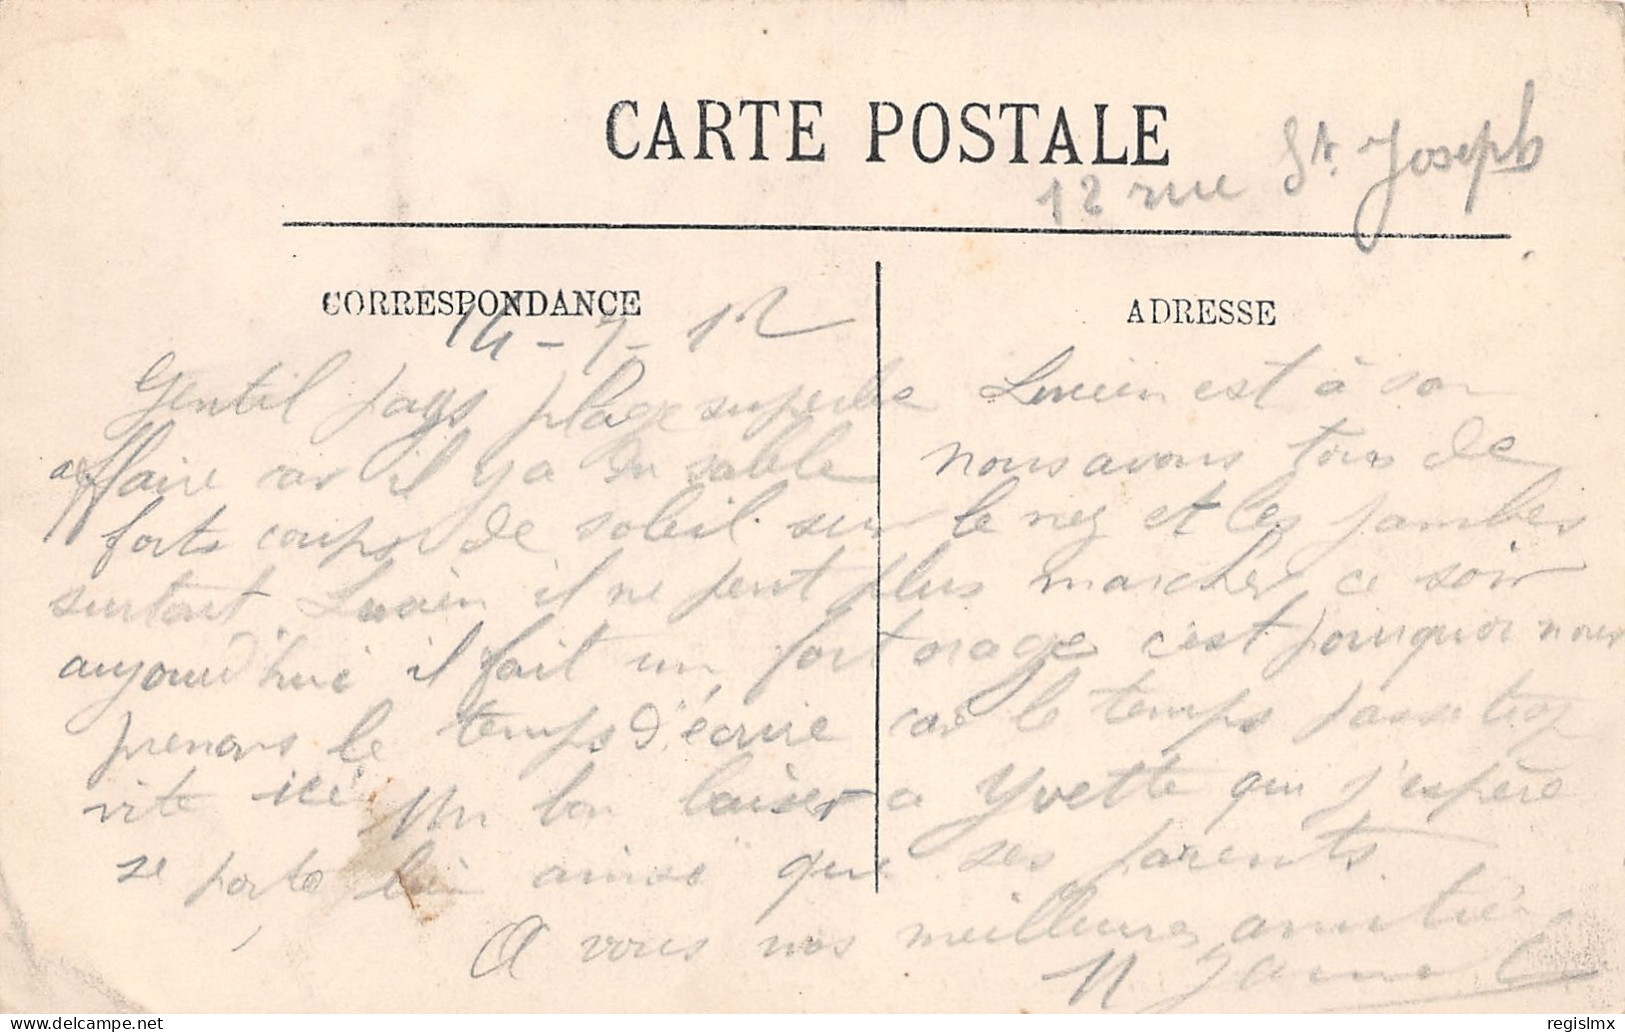 CARTE POSTALE
12 rue St. Joseph
CORRESPONDANCE
ADRESSE
14 - 7 - 12
Gentil pays plage superbe Lucien est à son
affaire car il y a du sable nous avons tous de
forts coups de soleil sur le nez et les jambes
surtout Lucien il ne peut plus marcher ce soir
aujourd'hui il fait un fort orage c'est pourquoi nous
prenons le temps d'écrire car le temps passe trop
vite ici Un bon baiser a Yvette qui j'espère
se porte bien ainsi que ses parents
A vous nos meilleures amitiés
delcampe.net
regislmx